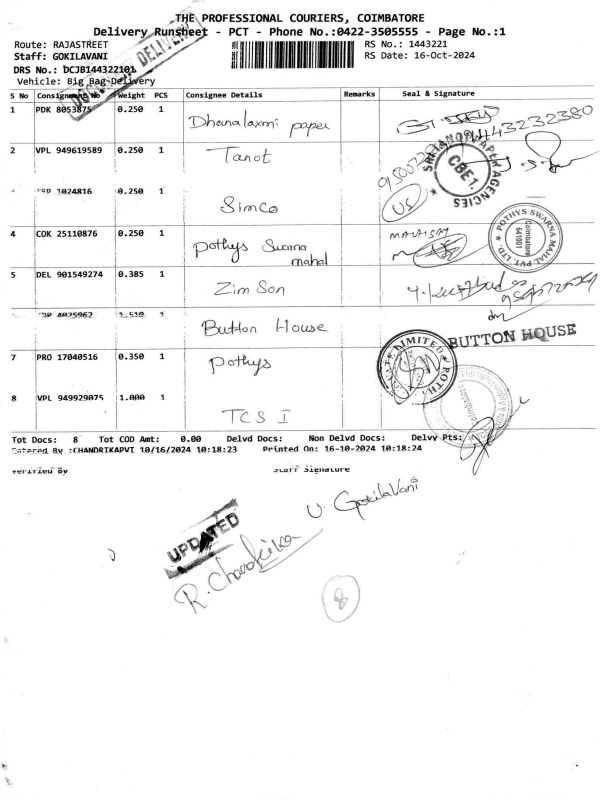 THE PROFESSIONAL COURIERS, COIMBATORE
Delivery Runsheet - PCT - Phone No.:0422-3505555 - Page No.:1
Route: RAJASTREET
RS No.: 1443221
Staff: GOKILAVANI
RS Date: 16-Oct-2024
DRS No.: DCJB144322101
Vehicle: Big Bag Delivery
DELIVERY
S No Consignment No Weight PCS Consignee Details Remarks Seal & Signature
1 PDK 8053875 0.250 1 Dhanalaxmi paper
2 VPL 949619589 0.250 1 Tanot
SRI TANOT PAPER AGENCIES
CBE-1.
1024816 0.250 1 Simco
US
4 COK 25110876 0.250 1 Pothys Swarna mahal
POTHYS SWARNA MAHAL PVT. LTD.
Coimbatore
641001
5 DEL 901549274 0.385 1 Zimson
4025962 1.510 Button House
BUTTON HOUSE
7 PRO 17040516 0.350 1 Pothys
LIMITED
8 VPL 949929075 1.000 1 TCS I
Tot Docs: 8 Tot COD Amt: 0.00 Delvd Docs: Non Delvd Docs: Delvy Pts:
Entered By :CHANDRIKAPVT 10/16/2024 10:18:23 Printed On: 16-10-2024 10:18:24
Verified By Staff Signature
U. GokilaVani
UPDATED
R. Chandrika
8